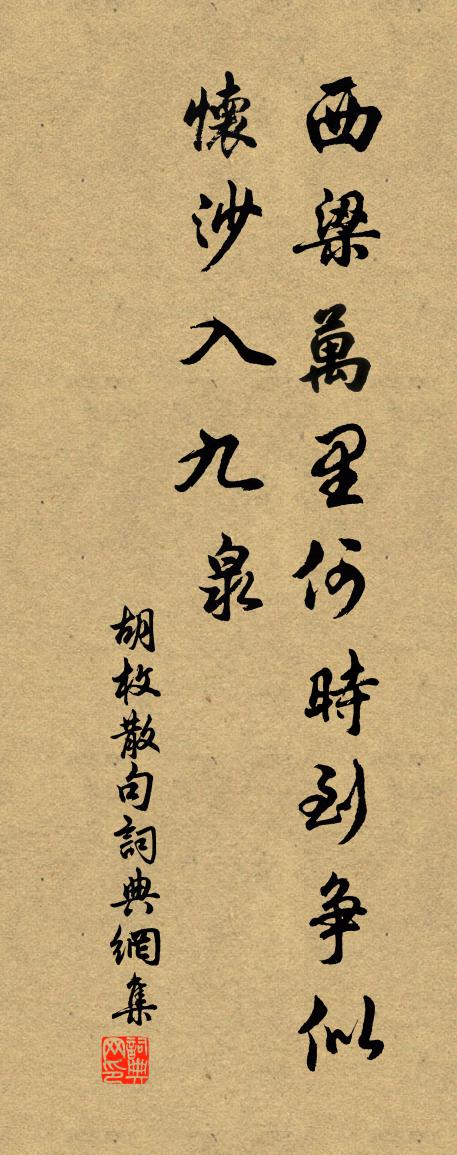 西梁萬里何時到争似
懷沙入九泉
胡枚散句詞典網集
詞典网印